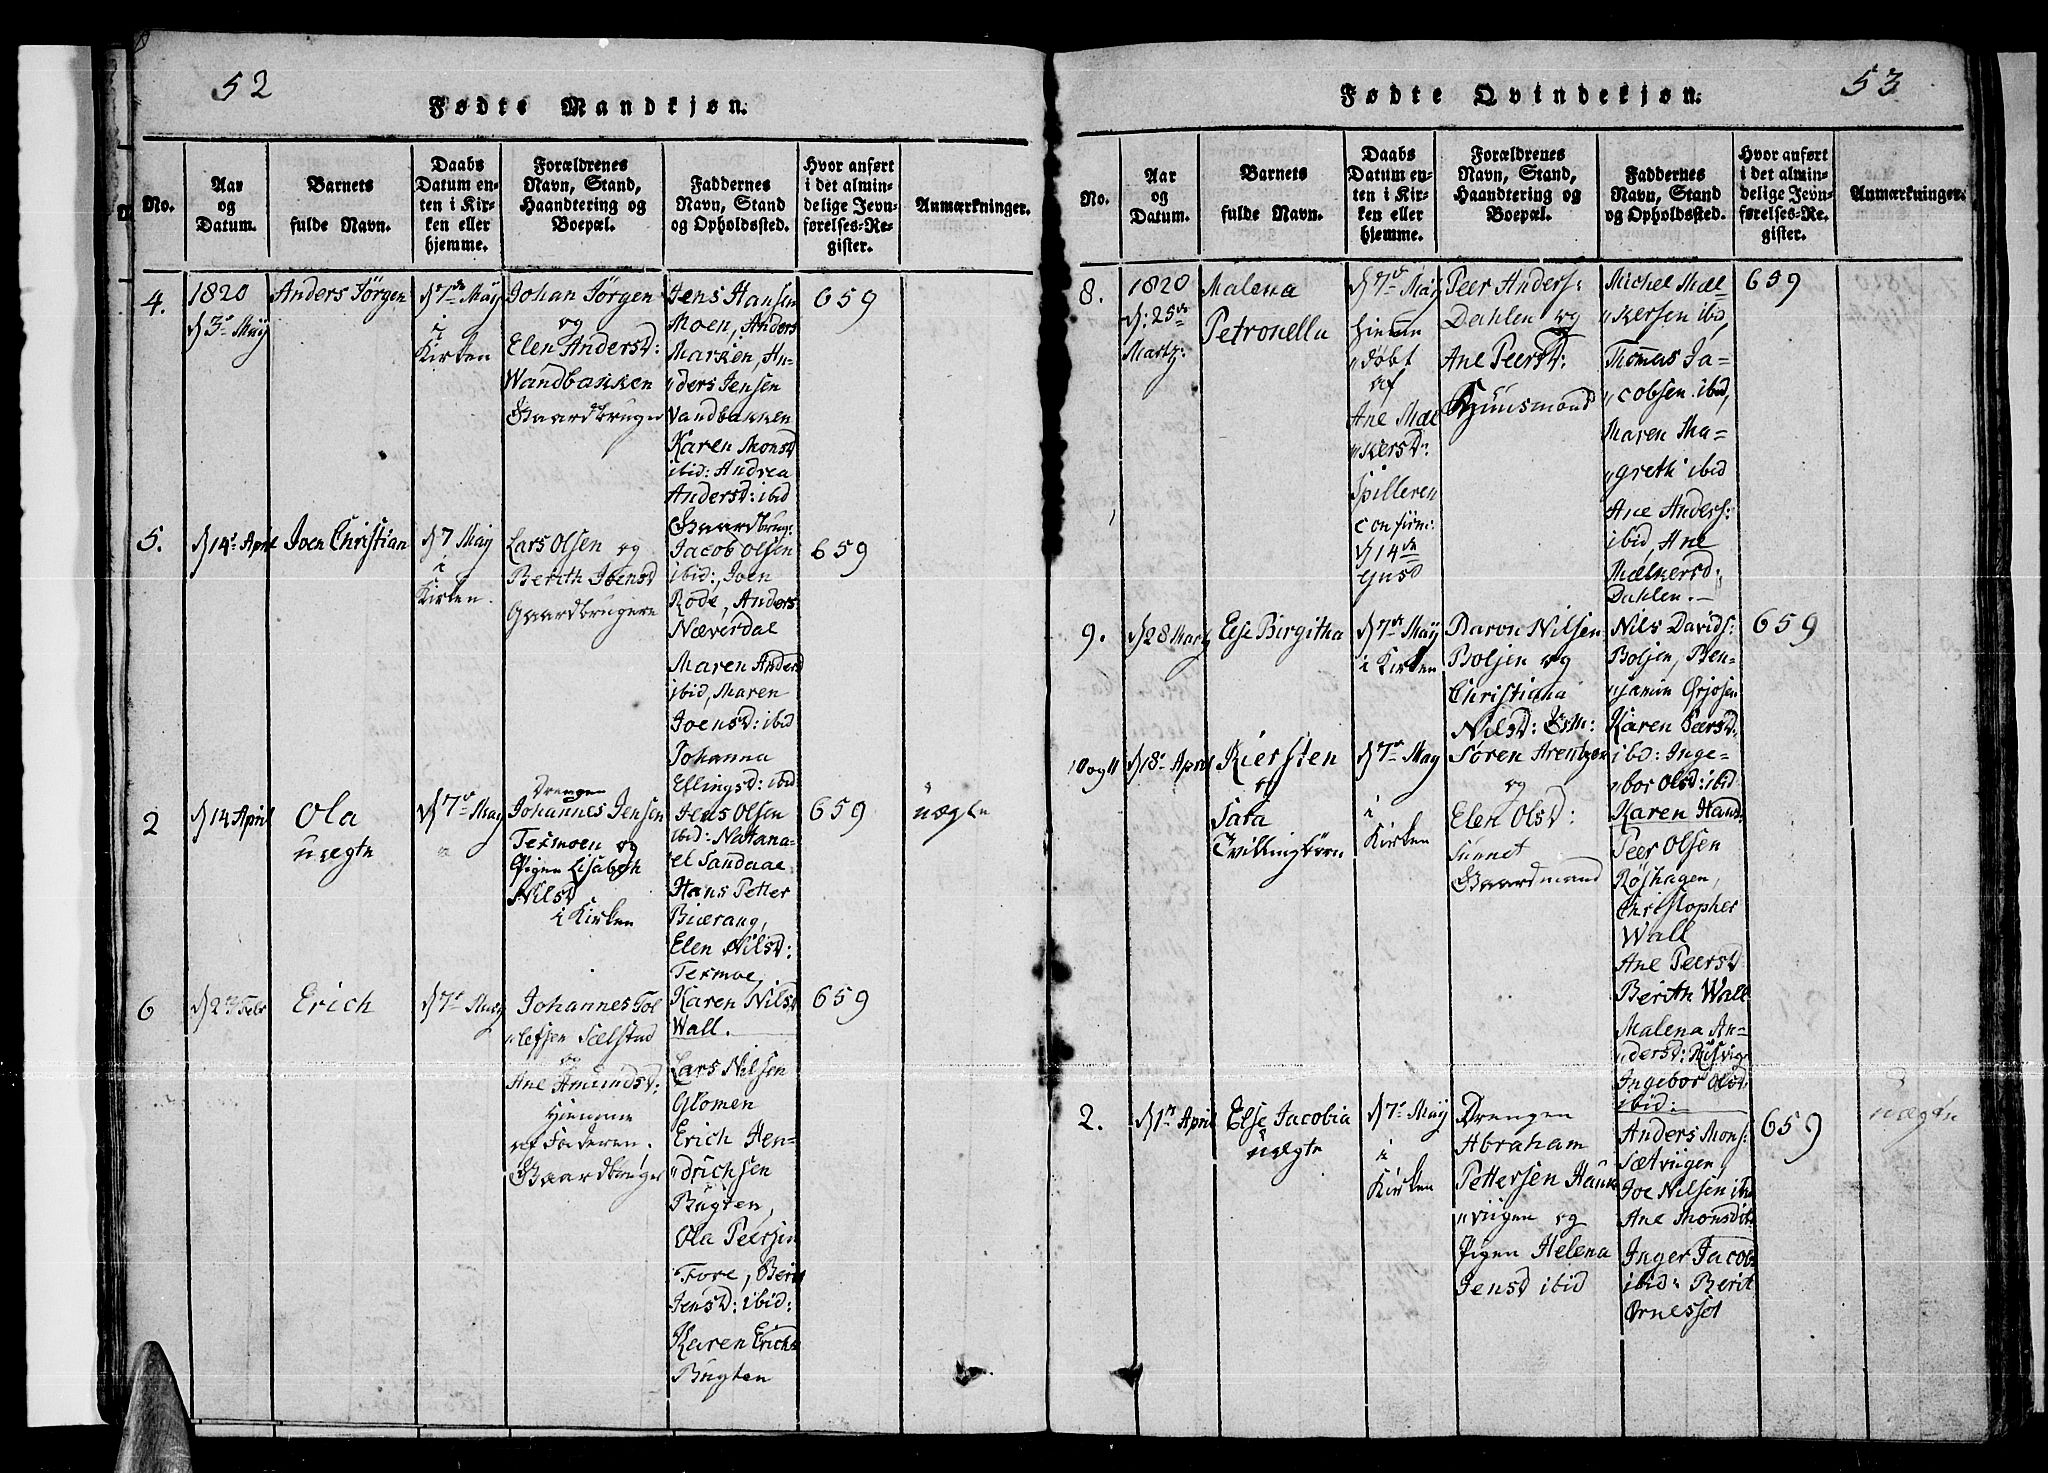 52
Fødte Mandkjøn.
No.
Aar
og
Datum.
Barnets
fulde Navn.
Daabs
Datum en-
ten i Kir-
ken eller
hjemme.
Forældrenes
Navn, Stand,
Haandtering og
Boepæl.
Faddernes
Navn, Stand
og Opholdssted.
Hvor anført
i det almin-
delige Jevn-
førelses-Re-
gister.
Anmærkninger.
4.
1820
d 3 May
Anders Jørgen
d 7de May
i
Kirken
Johan Jørgen
og
Elen Andersd:
Wandbakken
Gaardbruger
Jens Hansen
Moen, Anders
Marken, An-
„ders Jensen
Vandbakken
Karen Monsd
ibid: Andrea
Andersd: ibid
Gaardbrug:
659
5.
d 14 April
Joen Christian
d 7 May
i
Kirken.
Lars Olsen og
Berith Joensd
Gaardbrugere
Jacob Olsen
ibid:, Joen
Rode, Anders
Næverdal
Maren Anders
ibid, Maren
Joensd: ibid
Johanna
Ellingsd: ibid
659
2
d 14 April
Ola
uægte
d 7 May
Drengen
Johannes Jensen
Termoen og
Pigen Lisabeth
Nilsd
i Kirken
Jens Olsen
ibid: Natana-
el Sandaae
Hans Petter
Biærang,
Elen Nilsd:
Termoe,
Karen Nilsd
Wall.
659
uægte
6
Erich
d 7 May
Johannes Tol
„lefsen Sælstad
og
Ane Amundsd:
Hiemme
af Faderen.
Gaardbruger
Lars Nilsen
Glomen
Erich Hen-
„drichsen
Bugten,
Ola Peersen
Fore, Berit
Jensd: ibid:
Karen Erichs
Bugten
659
53
Fødte Qvindekjøn.
No.
Aar
og
Datum.
Barnets
fulde Navn.
Daabs
Datum en-
ten i Kir-
ken eller
hjemme.
Forældrenes
Navn, Stand,
Haandtering og
Boepæl.
Faddernes
Navn, Stand
og Opholdssted.
Hvor anført
i det almin-
delige Jevn-
førelses-Re-
gister.
Anmærkninger.
8.
1820
d: 25de
Martz:
Malena
Petronella
d 7de May
hiemme
„døbt
af
Ane Mæl
„kersd:
Spilleren
confirm:
d 14de
Peer Anders:
Dahlen og
Ane Peersd:
Huusmand
Michel Mæl-
„kersen ibid,
Thomas Ja-
„cobsen ibid,
Maren Ma-
„greth ibid
Ane Anders:
ibid, Ane
Mælkersd:
Dahlen.
659
9.
d 28 Martz
Else Birgitha
d 7de May
i Kirken
Aaron Nilsen
Boljen og
Christiana
Nilsd:
Nils Davids:
Boljen, Ben-
„jamin
Karen Peersd:
ibid: Inge-
„bor Olsd: ibid
659
10 og 11
d 18 April
Kiersten
og
Sara
Tvillingbørn
d 7de May
i
Kirken
Søren Arentzen
og
Elen Olsd:
Sunnet
Gaardmand
Karen Hans:
Peer Olsen
Røshagen,
Christopher
Wall
Ane Peersd
Berith Wall
Malena An-
„dersd:
Ingebor Olsd:
ibid:
2.
April
Else Jacobia
uægte
d 7 May
i
Kirken
Drengen
Abraham
Pettersen
„viigen og
Pigen Helena
Jensd ibid
Anders Mons:
Sætviigen,
Joe Nilsen ibid
Ane Monsd
Inger Jacob
ibid: Berit
Ørnesset
659
uægte